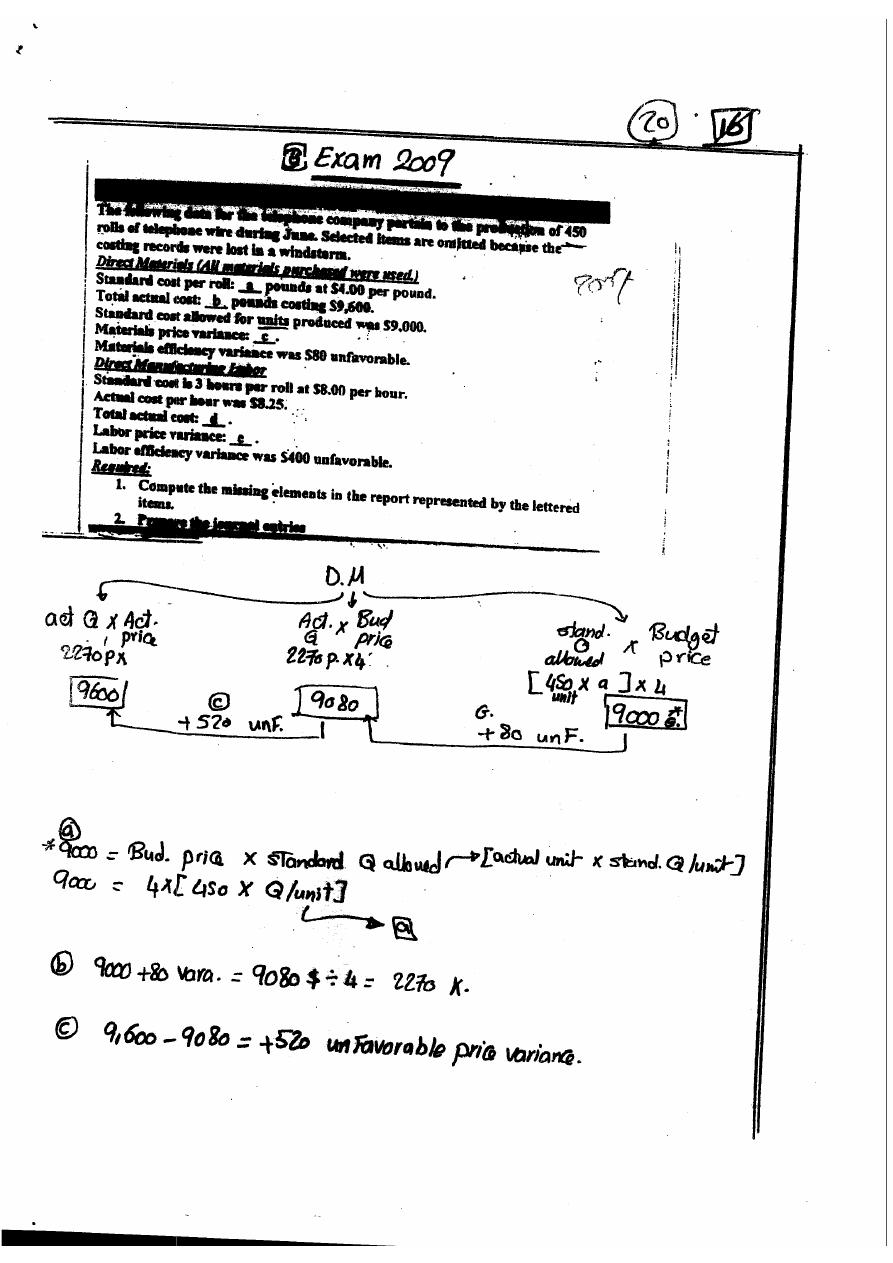 20
16
B Exam 2009
The following data for the telephone company pertain to the production of 450
rolls of telephone wire during June. Selected items are omitted because the
costing records were lost in a windstorm.
Direct Materials (All materials purchased were used.)
Standard cost per roll: a pounds at $4.00 per pound.
Total actual cost: b pounds costing $9,600.
Standard cost allowed for units produced was $9,000.
Materials price variance: c .
Materials efficiency variance was $80 unfavorable.
Direct Manufacturing Labor
Standard cost is 3 hours per roll at $8.00 per hour.
Actual cost per hour was $8.25.
Total actual cost: d .
Labor price variance: e .
Labor efficiency variance was $400 unfavorable.
Required:
1. Compute the missing elements in the report represented by the lettered
items.
2. Prepare the journal entries
D.M
act Q x Act. price
2270 p x
9600
Act. Q x Bud price
2270 p. x 4
9080
stand. Q allowed x Budget price
[450 unit x a ] x 4
9000 * G.
c
+ 520 unF.
G.
+ 80 unF.
a
*9000 = Bud. price x standard Q allowed → [actual unit x stand. Q/unit]
9000 = 4x[ 450 x Q/unit]
a
b 9000 + 80 Vara. = 9080 $ ÷ 4 = 2270 K.
c 9,600 - 9080 = +520 unFavorable price variance.